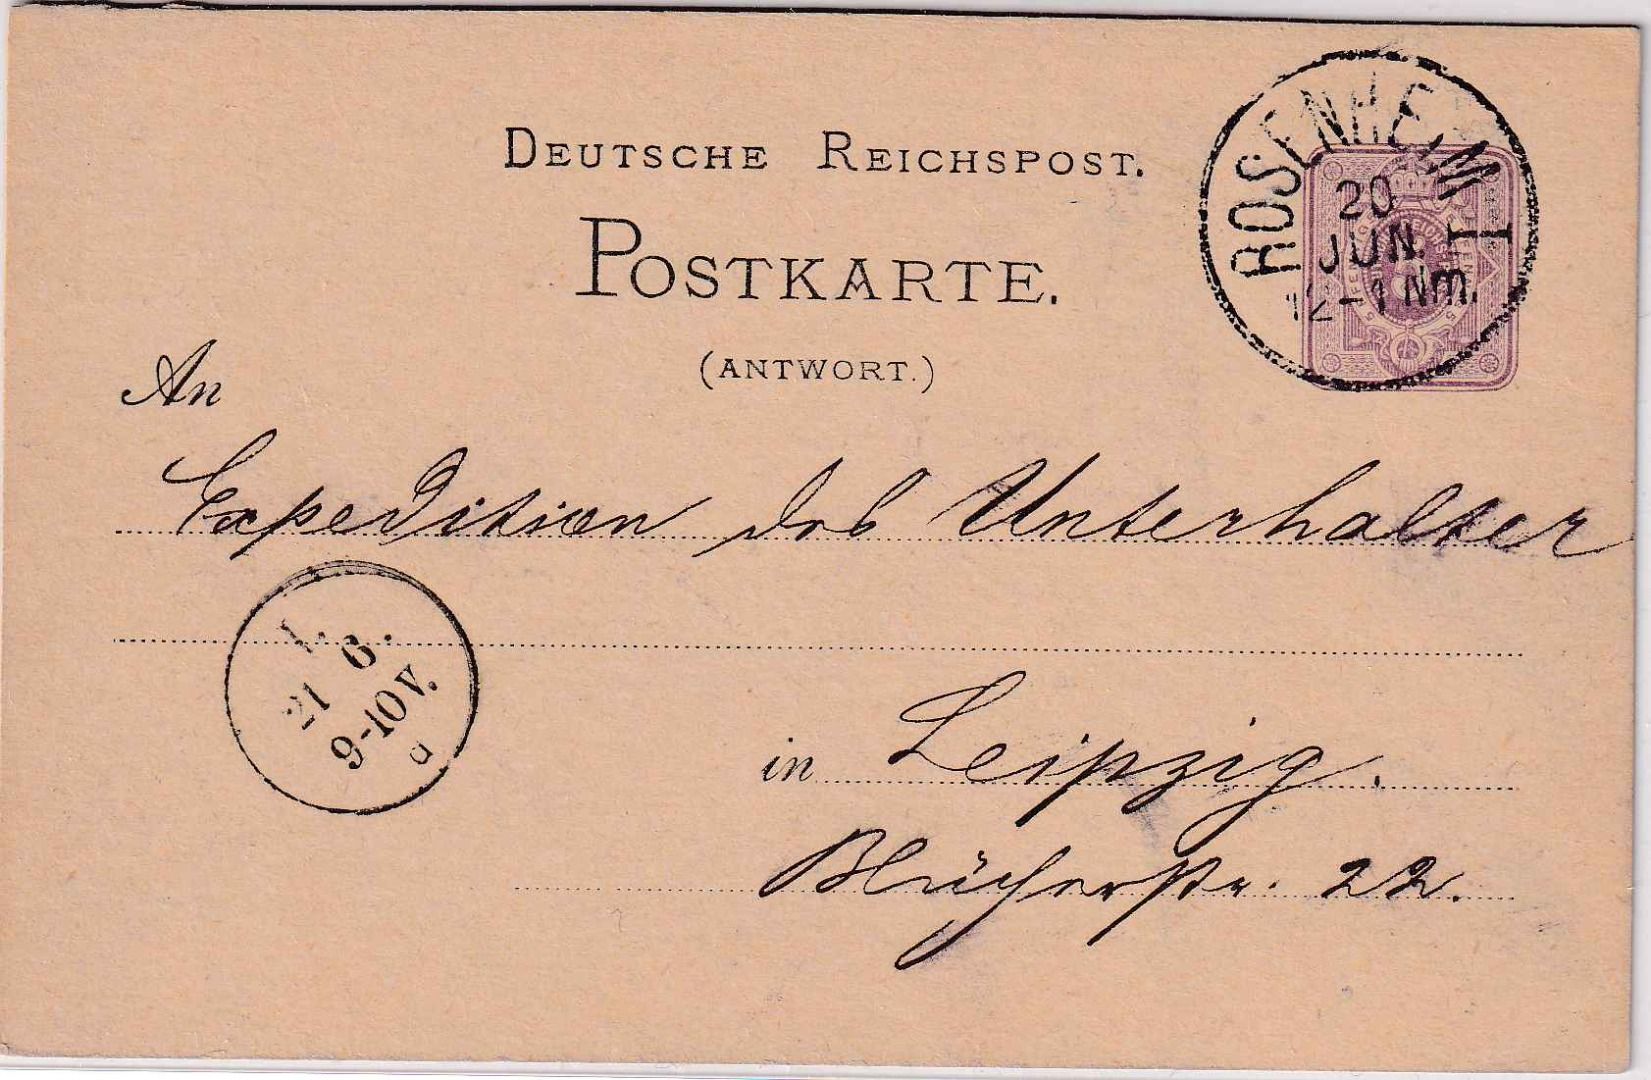 DEUTSCHE REICHSPOST.
POSTKARTE.
(ANTWORT.)
ROSENHEIM I
20
JUN.
12-1 Nm.
An
Expedition des Unterhalter
L.
21 6.
9-10V.
d
in Leipzig.
Blücherstr. 22.